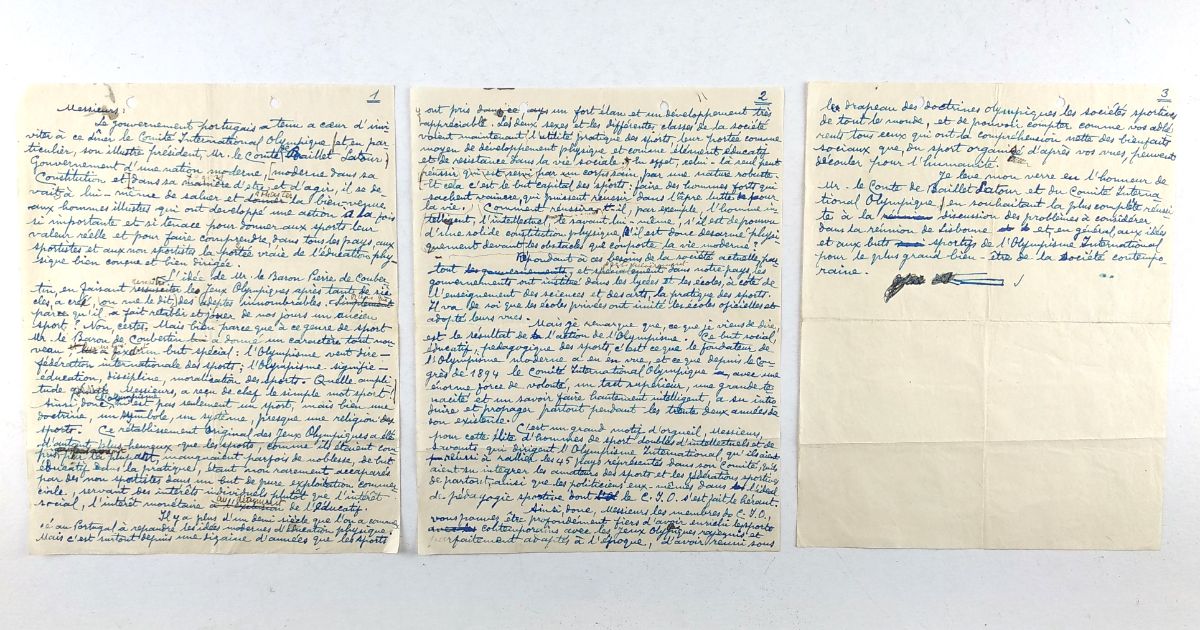 1
Messieurs:
Le gouvernement portugais a tenu a cœur d'invi
viter à ce diner le Comité International Olympique (et en par
ticulier, son illustre président, Mr. le Comte de Baillet Latour)
Gouvernement d'une nation moderne, moderne dans sa
Constitution et dans sa manière d'être et d'agir, il se de-
vait à lui-même de saluer et souhaiter la bien-venue
aux hommes illustres qui ont developpé une action à la fois
si importante et si ténace pour donner aux sports leur
valeur réelle et pour faire comprendre, dans tous les pays, aux
sportistes et aux non sportistes la portée vraie de l'éducation phy-
sique bien conçue et bien dirigée.
L'idée de Mr. le Baron Pierre de Couber
tin, en faisant renaitre les Jeux Olympiques après tant de siè-
cles, a créé, (on me le dit) des adeptes innombrables.
parce qu'il a fait rétablir et jouer de nos jours un ancien
sport? Non certes. Mais bien parce que à ce genre de sport
Mr. le Baron de Coubertin a donné un caractère tout nou
veau, un but spécial: l'Olympisme veut dire-
fédération internationale des sports; l'Olympisme signifie-
éducation, discipline, moralisation des sports. Quelle ampli
tude Messieurs, a reçu de chef le simple mot sport!
Ainsi donc, l'Olympisme n'est pas seulement un sport, mais bien une
doctrine, un symbole, un système, presque une religion des
sports. Ce rétablissement original des Jeux Olympiques a été
d'autant plus heureux que les sports, comme ils étaient com
pris manquaient parfois de noblesse, de but
éducatif dans la pratique, étant non rarement accaparés
par des non sportistes dans un but de pure exploitation commer
ciale, servant des intérêts individuels plutôt que l'intérêt
social, l'intérêt monétaire au de l'éducatif.
Il y a plus d'un demi siècle que l'on a commen
cé au Portugal à répandre les idées modernes d'éducation physique.
Mais c'est surtout depuis une dizaine d'années que les sports
2
ont pris dans ce pays un fort élan et un développement très
appréciable. Les deux sexes et les différentes classes de la société
voient maintenant l'utilité pratique des sports, leur portée comme
moyen de développement physique et comme élément éducatif
et de resistance dans la vie sociale. En effet, celui-là seul peut
réussir qui est servi par un corps sain, par une nature robuste.
Et cela c'est le but capital des sports: faire des hommes forts qui
sachent vaincre, qui puissent réussir dans l'âpre lutte pour
la vie. Comment réussirait-il, par exemple, l'homme in
telligent, l'intellectuel, le savant lui-même, s'il est depourvu
d'une solide constitution physique, s'il est donc désarmé physi
quement devant les obstacles que comporte la vie moderne?
Répondant à ces besoins de la société actuelle, par
tout les gouvernements, et spécialement dans notre pays, les
gouvernements ont institué dans les lycées et les écoles, à côté de
l'enseignement des sciences et des arts, la pratique des sports.
Il va de soi que les écoles privées ont imité les écoles officielles et
adopté leurs vues.
Mais je remarque que, ce que je viens de dire,
est le résultat de l'action de l'Olympisme. Ce but social,
éducatif, pédagogique des sports, c'est ce que le fondateur de
l'Olympisme moderne a eu en vue, et ce que depuis le Con-
grès de 1894 le Comité International Olympique, avec une
énorme force de volonté, un tact supérieur, une grande te
nacité et un savoir faire hautement intelligent, a su intro
duire et propager partout pendant les trente deux années de
son existence.
C'est un grand motif d'orgueil, Messieurs,
pour cette élite d'hommes de sport doublés d'intellectuels et de
savants qui dirigent l'Olympisme International, qu'ils aient
réussi à rallier les 45 pays représentés dans son Comité, qu'ils
aient su intégrer les amateurs des sports et les fédérations sportives
de partout, ainsi que les politiciens eux-mêmes dans l'idéal
de pédagogie sportive dont le C.I.O. s'est fait le héraut.
Ainsi, donc, Messieurs les membres du C.I.O.,
vous pouvez être profondément fiers d'avoir ennobli les sports
contemporains avec les Jeux Olympiques rajeunis et
parfaitement adaptés à l'époque, d'avoir réuni sous
3
le drapeau des doctrines olympiques les sociétés sportives
de tout le monde, et de pouvoir compter comme vos adhé
rents tous ceux qui ont la compréhension nette des bienfaits
sociaux que, du sport organisé d'après vos vues, peuvent
découler pour l'humanité.
Je lève mon verre en l'honneur de
Mr. le Comte de Baillet Latour et du Comité Interna
tional Olympique, en souhaitant la plus complète réussi
te à la discussion des problèmes à considérer
dans la réunion de Lisbonne et, en général, aux idées
et aux buts sportifs de l'Olympisme International
pour le plus grand bien-être de la société contempo
raine.